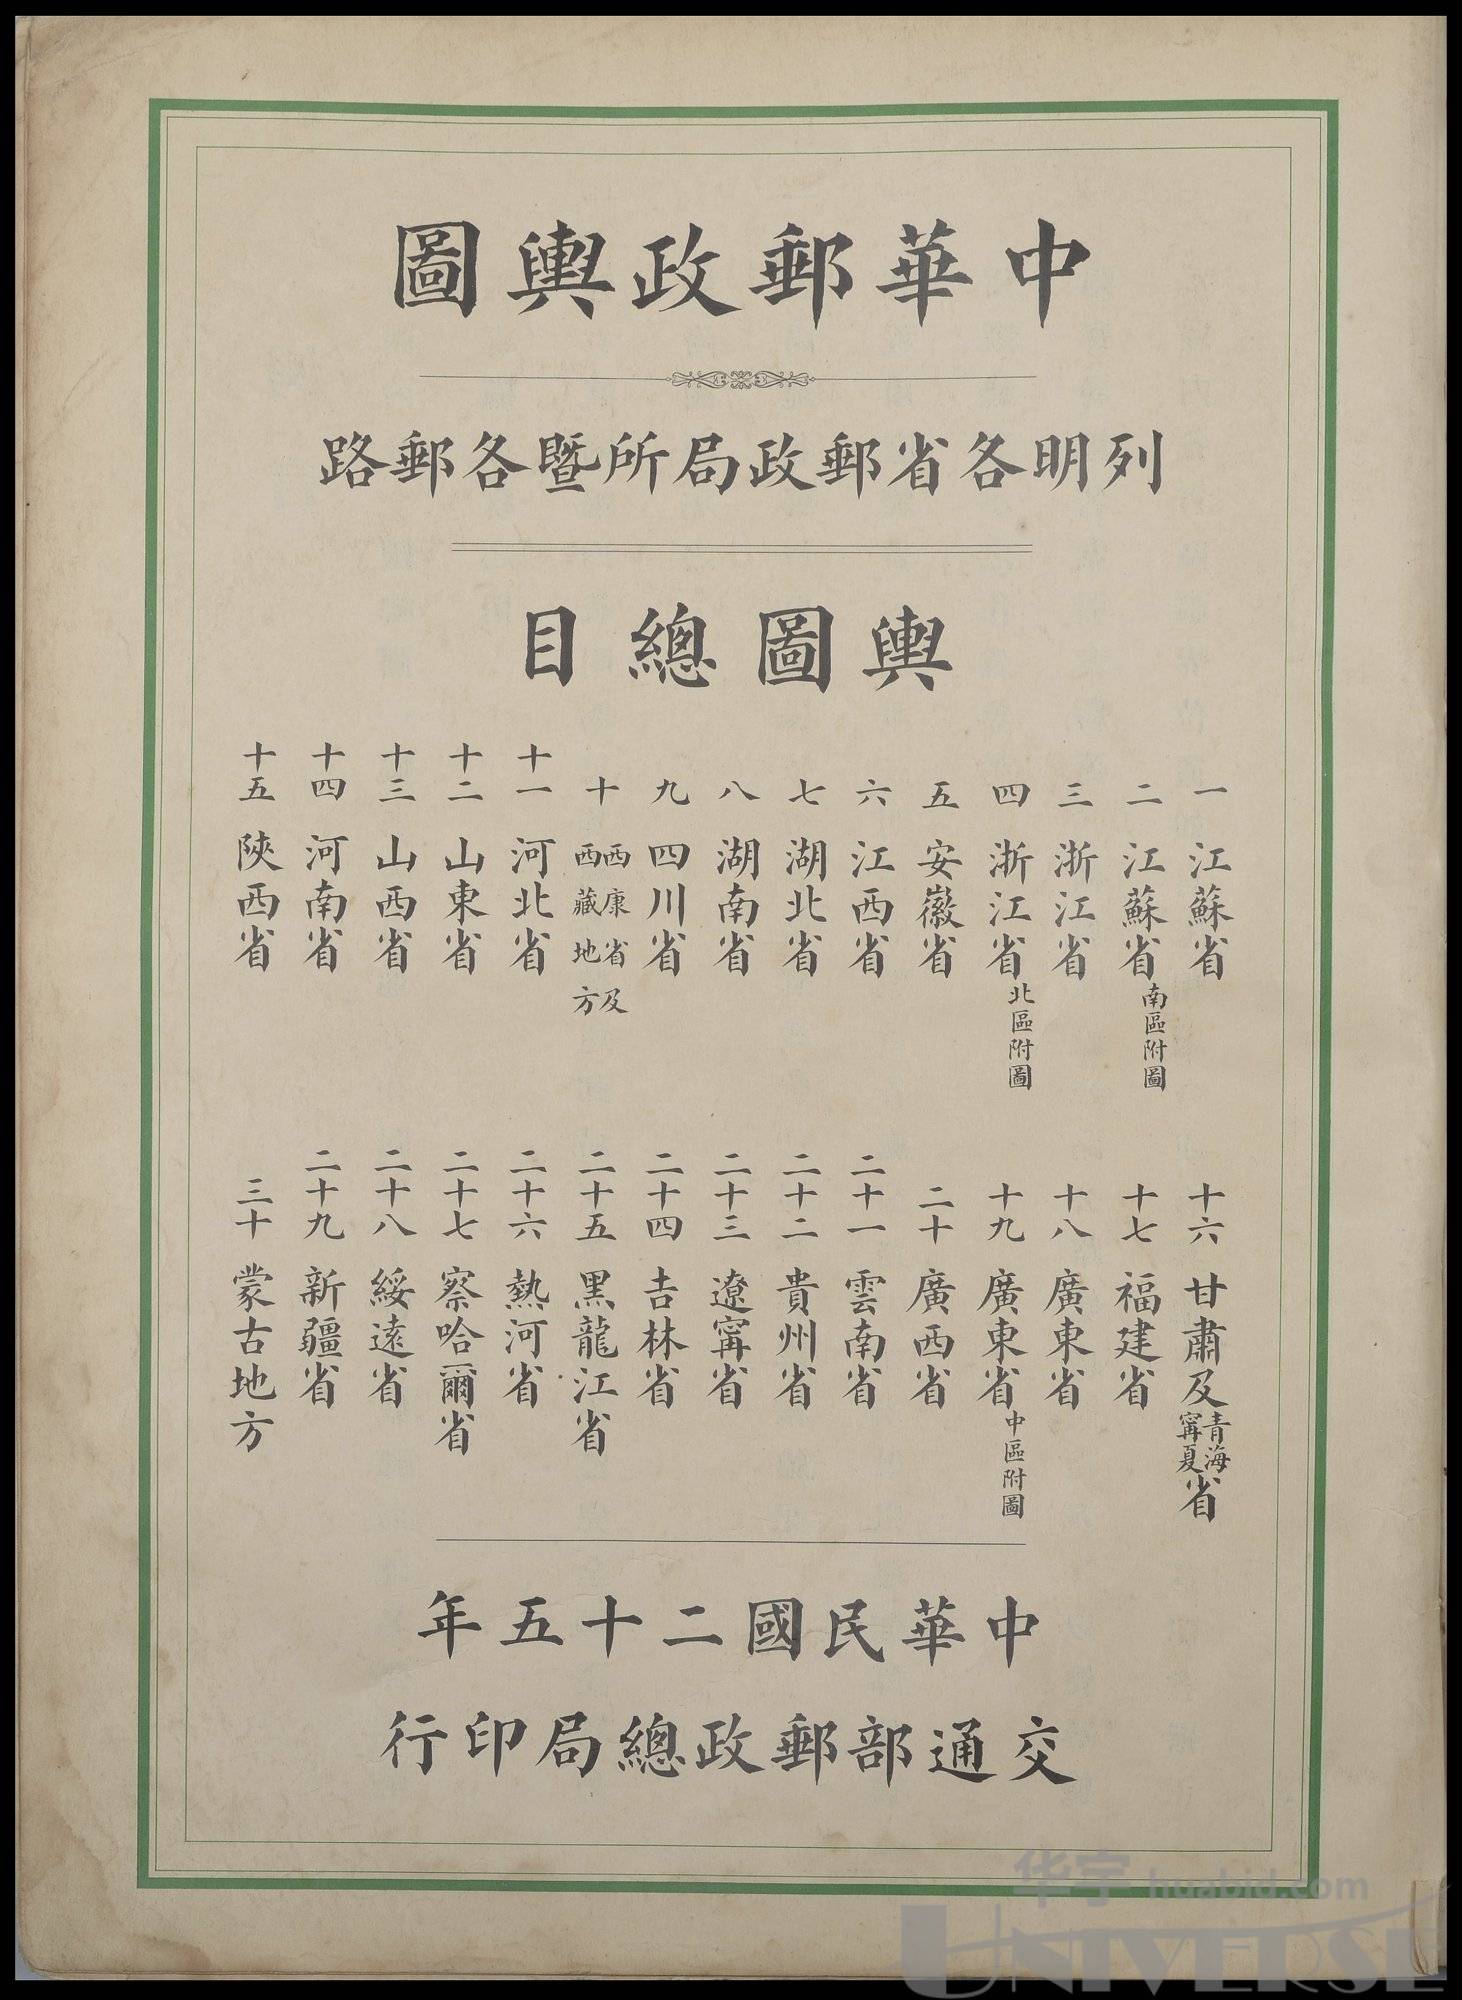 中華郵政輿圖
列明各省郵政局所暨各郵路
輿圖總目
一 江蘇省
二 江蘇省南區附圖
三 浙江省
四 浙江省北區附圖
五 安徽省
六 江西省
七 湖北省
八 湖南省
九 四川省
十 西康省及西藏地方
十一 河北省
十二 山東省
十三 山西省
十四 河南省
十五 陝西省
十六 甘肅及青海寧夏省
十七 福建省
十八 廣東省
十九 廣東省中區附圖
二十 廣西省
二十一 雲南省
二十二 貴州省
二十三 遼寧省
二十四 吉林省
二十五 黑龍江省
二十六 熱河省
二十七 察哈爾省
二十八 綏遠省
二十九 新疆省
三十 蒙古地方
中華民國二十五年
交通部郵政總局印行
华宇 huabid.com
UNIVERSE